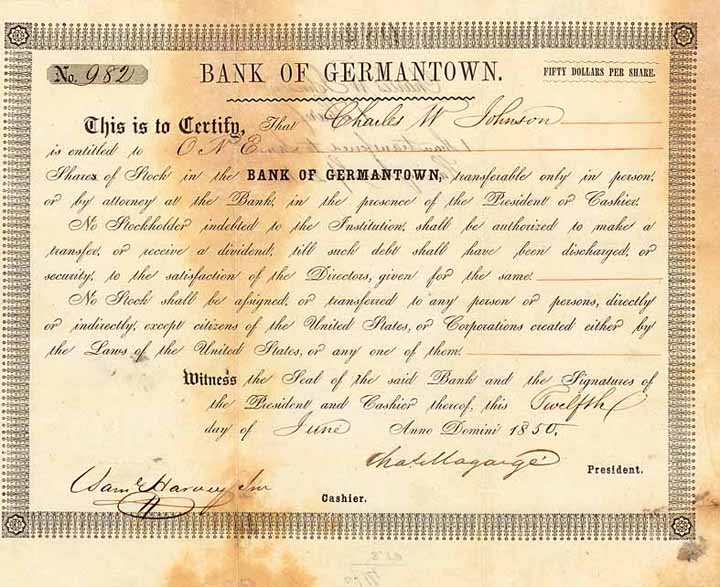 No. 982
BANK OF GERMANTOWN.
FIFTY DOLLARS PER SHARE.
This is to Certify, That Charles W Johnson
is entitled to ONE
Shares of Stock in the BANK OF GERMANTOWN, transferable only in person,
or by attorney at the Bank, in the presence of the President or Cashier.
No Stockholder indebted to the Institution, shall be authorized to make a
transfer, or receive a dividend, till such debt shall have been discharged, or
security, to the satisfaction of the Directors, given for the same.
No Stock shall be assigned, or transferred to any person or persons, directly
or indirectly, except citizens of the United States, or Corporations created either by
the Laws of the United States, or any one of them.
Witness the Seal of the said Bank and the Signatures of
the President and Cashier thereof, this Twelfth
day of June Anno Domini 1850.
Chas Magargé President.
Saml Harvey Jnr Cashier.